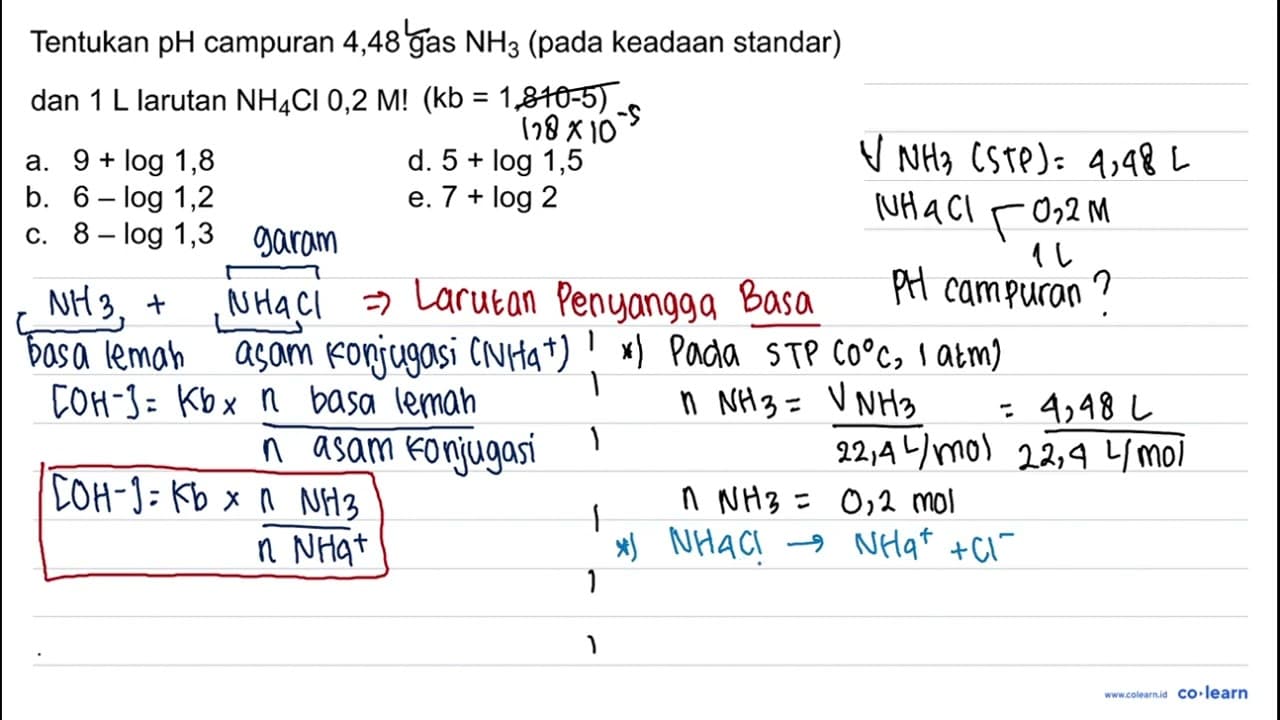 Tentukan pH campuran 4,48 L gas NH3 (pada keadaan standar)
dan 1 L larutan NH4Cl 0,2 M! (kb = 1,810-5)
1,8 × 10-5
a. 9 + log 1,8
b. 6 – log 1,2
c. 8 – log 1,3
d. 5 + log 1,5
e. 7 + log 2
V NH3 (STP) = 4,48 L
NH4Cl 0,2 M
1 L
PH campuran ?
garam
NH3 + NH4Cl ⇒ Larutan Penyangga Basa
basa lemah asam konjugasi (NH4+)
[OH-] = Kb × n basa lemah
n asam konjugasi
[OH-] = Kb × n NH3
n NH4+
*) Pada STP (0°C, 1 atm)
n NH3 = V NH3 = 4,48 L
22,4 L/mol 22,4 L/mol
n NH3 = 0,2 mol
*) NH4Cl → NH4+ + Cl-
www.colearn.id co·learn